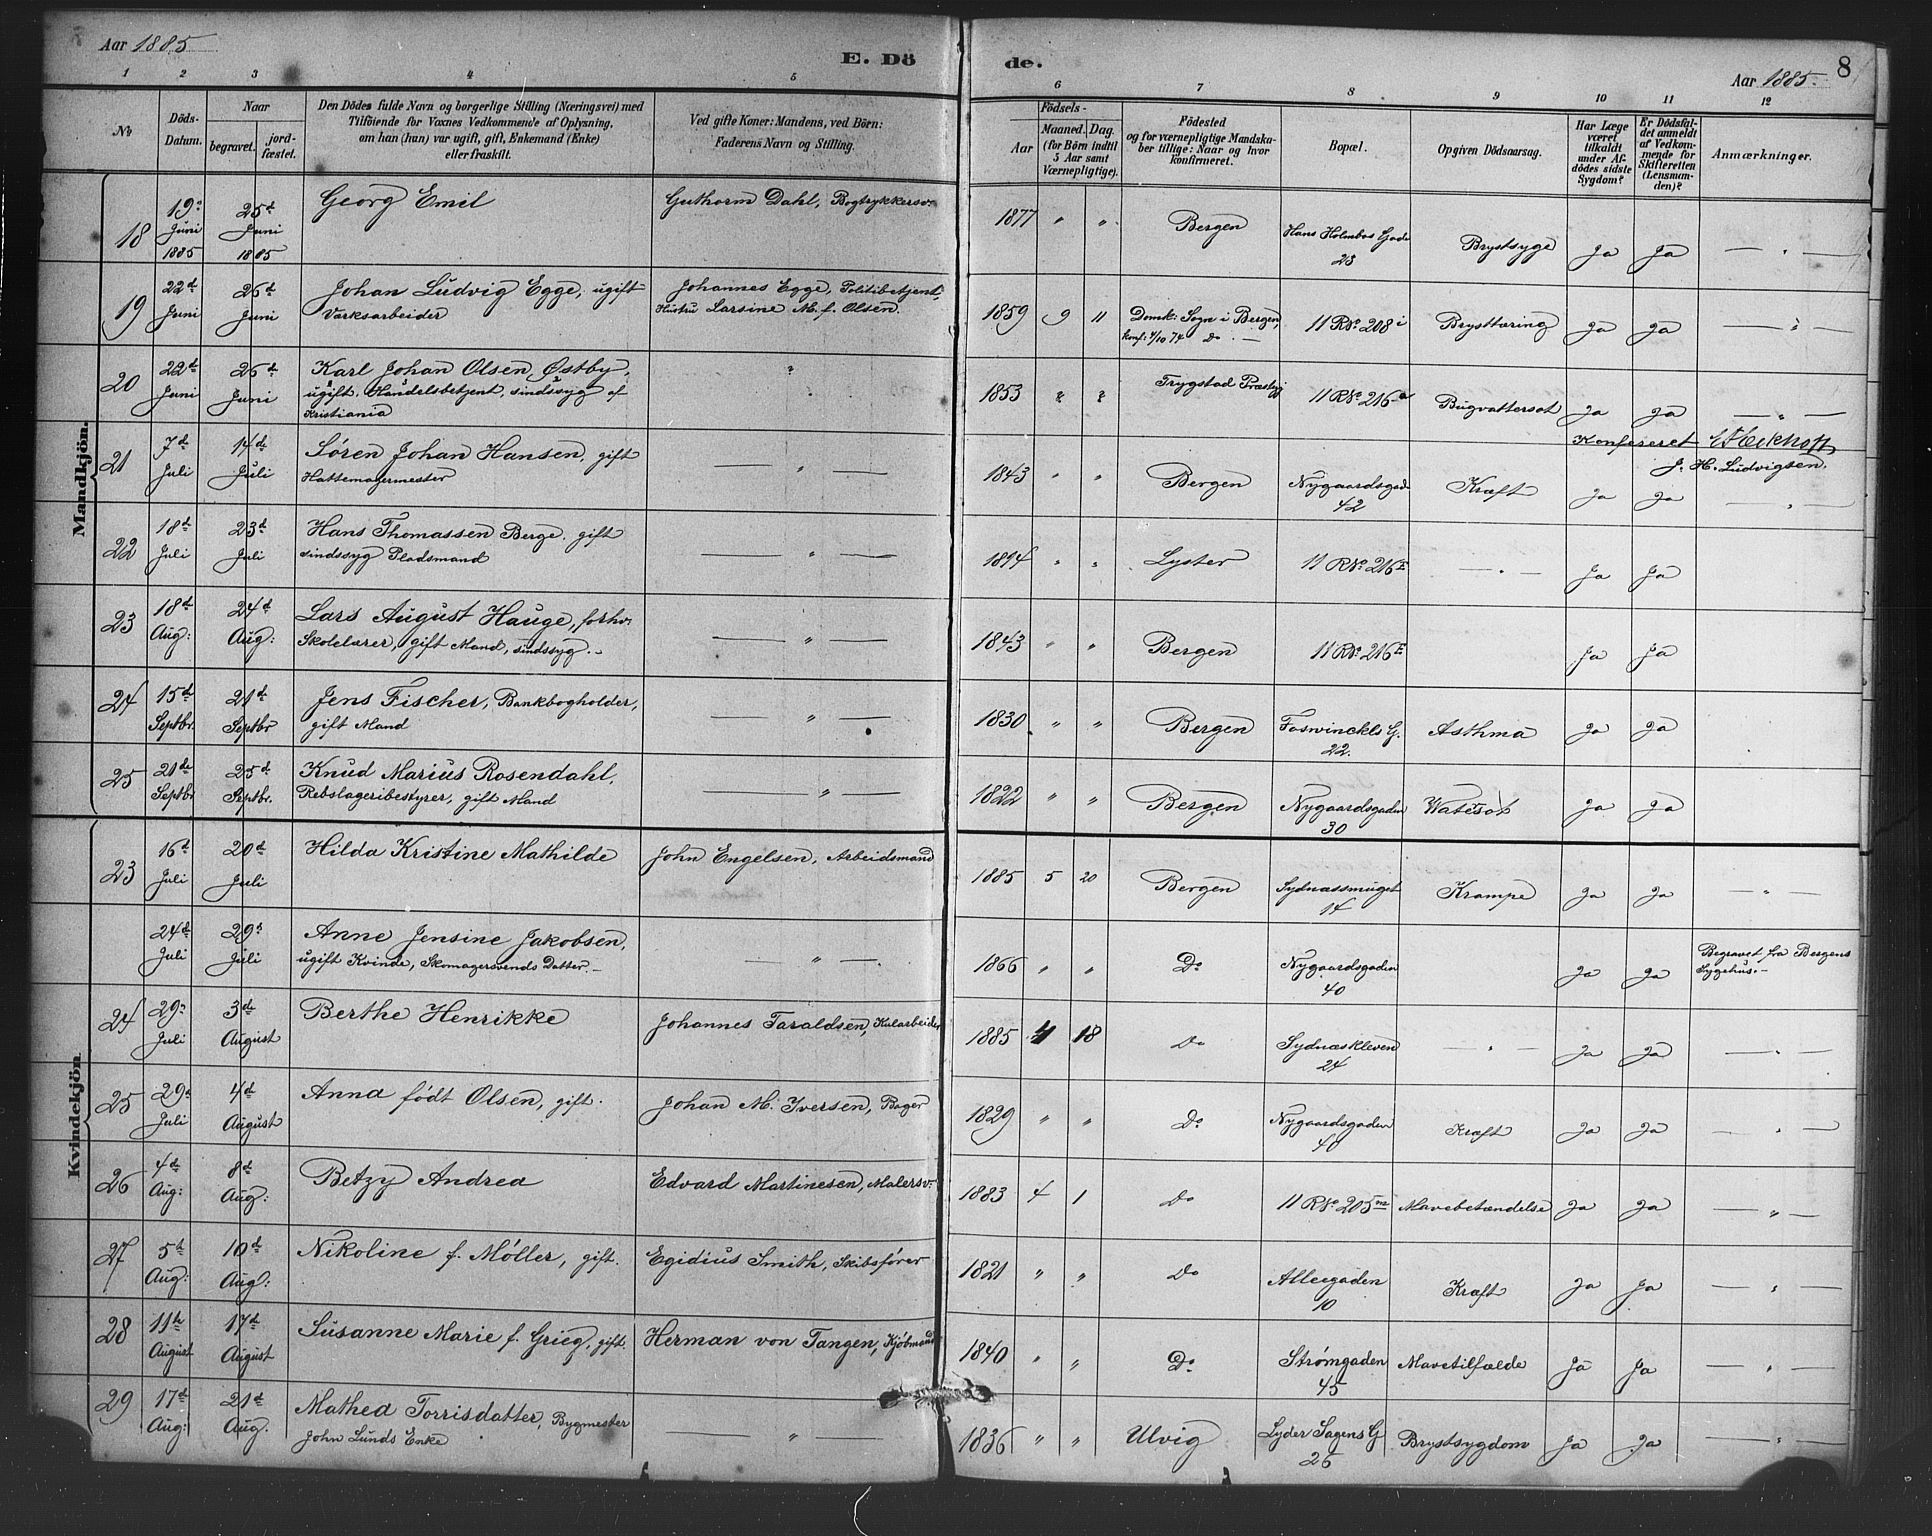 Aar 1885
E. Dö
de.
8
Aar 1885.
1 2 3 4 5 6 7 8 9 10 11 12
No
Döds-Datum.
Naar
begravet.
jord-fæstet.
Den Dödes fulde Navn og borgerlige Stilling (Næringsvei) med
Tilföiende for Voxnes Vedkommende af Oplysning,
om han (hun) var ugift, gift, Enkemand (Enke)
eller fraskilt.
Ved gifte Koner: Mandens, ved Börn:
Faderens Navn og Stilling.
Födsels-
Aar
Maaned. Dag.
(for Börn indtil
5 Aar samt
Værnepligtige).
Födested
og for værnepligtige Mandska-
ber tillige: Naar og hvor
konfirmeret.
Bopæl.
Opgiven Dödsaarsag.
Har Læge
været
tilkaldt
under Af-
dödes sidste
Sygdom?
Er Dödsfal-
det anmeldt
af Vedkom-
mende for
Skifteretten
(Lensman-
den)?
Anmærkninger.
Mandkjön.
18 19d Juni 1885 25d Juni 1885 Georg Emil Guthorm Dahl, Bogtrykkersv. 1877 " " Bergen Hans Holmbos Gade 23 Brystsyge Ja Ja — " —
19 22d Juni 26d Juni Johan Ludvig Egge, ugift Johannes Egge, Politibetjent,
Værksarbeider Hustru Larsine M. f. Olsen. 1859 9 11 Domk: Sogn i Bergen, konf: 4/10 74 Do. — 11 R No 208 i Brysttæring Ja Ja — " —
20 22d Juni 26d Juni Karl Johan Olsen Østby, " 1853 " " Trygstad Præstgj 11 R No 216 a Bugvattersot Ja Ja — " —
ugift, Handelsbetjent, sindssyg af
Kristiania
Konfereret
J. H. Ludvigsen.
21 7d Juli 14d Juli Søren Johan Hansen, gift — " — 1843 " " Bergen Nygaardsgad 42 Kræft Ja Ja — " —
Hattemagermester
22 18d Juli 23d Juli Hans Thomassen Berge, gift — " — 1814 " " Lyster 11 R No 216 E — " — Ja Ja
sindssyg Pladsmand
23 18d Aug: 24d Aug: Lars August Hauge, forhv. — " — 1843 " " Bergen 11 R No 216 E Ja Ja
Skolelærer, gift Mand, sindssyg. —
24 15d Septbr. 21d Septbr Jens Fischer, Bankbogholder, — " — 1830 " " Bergen Foswinckls G. 22. Asthma Ja Ja
gift Mand
25 21de Septbr 25d Septbr. Knud Marius Rosendahl, — " — 1822 " " Bergen Nygaardsgaden 30 Watesot Ja Ja
Rebslageribestyrer, gift Mand
Kvindekjön
23 16d Juli 20d Juli Hilda Kristine Mathilde John Engelsen, Arbeidsmand 1885 5 20 Bergen Sydnæssmuget 14 Krampe Ja Ja "
24de Juli 29d Juli Anne Jensine Jakobsen, — " — 1866 " " Do Nygaardsgaden 40 Ja Ja Begravet fra Bergens Sygehus. —
ugift Kvinde, Skomagersvends Datter. —
24 29d Juli 3de August Berthe Henrikke Johannes Taraldsen, Kularbeider 1885 4 18 Do Sydnæskleven 24 — " — Ja Ja — " —
25 29d Juli 4d August Anna født Olsen, gift. Johan M. Iversen, Bager 1829 " " Do Nygaardsgaden 40 Kræft Ja Ja — " —
26 4de Aug: 8d Aug: Betzy Andrea Edvard Martinesen, Malersv. 1883 4 1 Do 11 R No 205 m Mavebetændelse Ja Ja — " —
27 5t Aug: 10d Aug: Nikoline f. Møller, gift. Egidius Smith, Skibsfører 1821 " " Do Alleegaden 10 Kræft Ja Ja — " —
28 11te August 17d August Susanne Marie f. Grieg, gift. Herman von Tangen, Kjøbmand 1840 " " Do Strømgaden 45 Mavetilfælde Ja Ja — " —
29 17d Aug: 21d Aug. Mathea Torrisdatter, Bygmester — " — 1836 " " Ulvig Lyder Sagens G 26 Brystsygdom Ja Ja — " —
John Lunds Enke